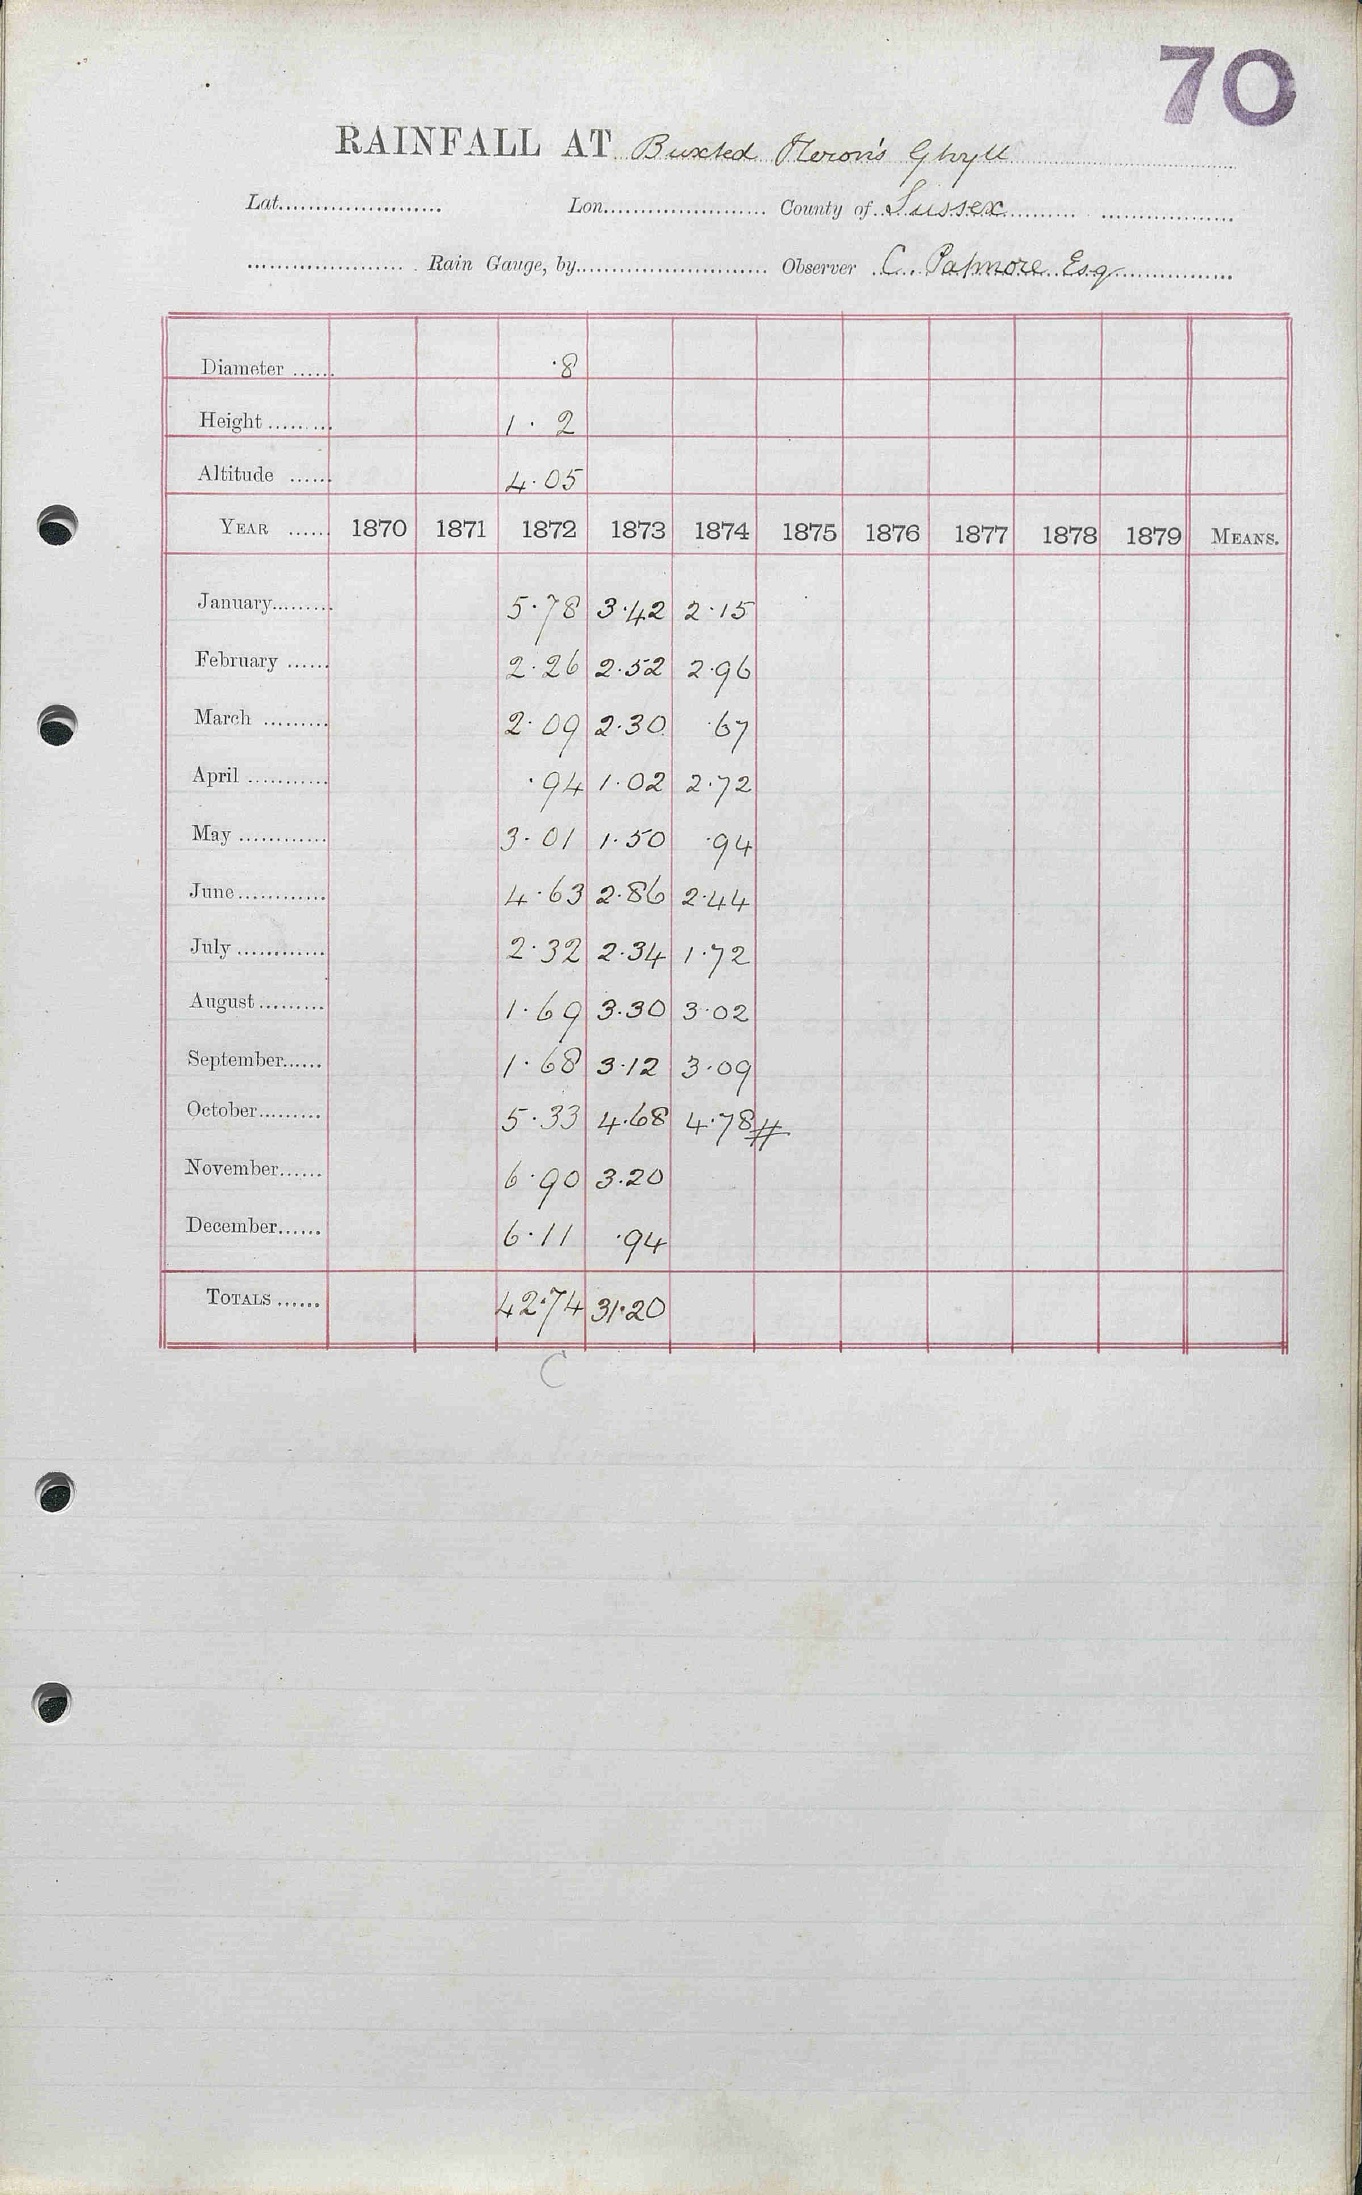 70
RAINFALL AT Buxted Heron's Ghyll
Lat. Lon. County of Sussex
Rain Gauge, by Observer C. Patmore Esq
Diameter ...... ·8
Height ......... 1· 2
Altitude ...... 4·05
YEAR ...... 1870 1871 1872 1873 1874 1875 1876 1877 1878 1879 MEANS.
January......... 5·78 3·42 2·15
February ...... 2·26 2·52 2·96
March ......... 2·09 2·30 ·67
April ........... ·94 1·02 2·72
May ............ 3·01 1·50 ·94
June............ 4·63 2·86 2·44
July ............ 2·32 2·34 1·72
August ......... 1·69 3·30 3·02
September...... 1·68 3·12 3·09
October......... 5·33 4·68 4·78 #
November...... 6·90 3·20
December...... 6·11 ·94
TOTALS ...... 42·74 31·20
C